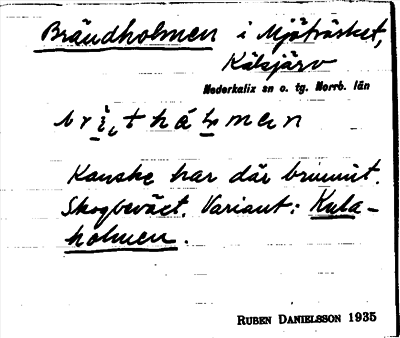 Brändholmen i Mjöträsket,
Kälsjärv
Nederkalix sn o. tg. Norrb. län
Kanske har där brunnit.
Skogbeväxt. Variant: Kula-
holmen.
RUBEN DANIELSSON 1935